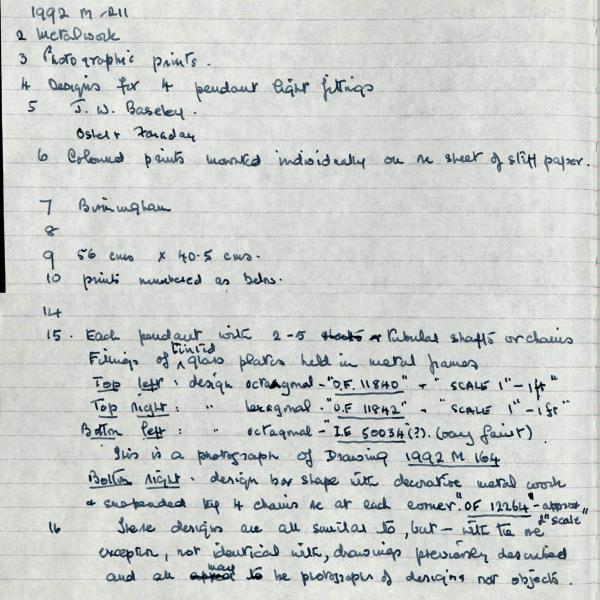 1992 M 211
2 Metalwork
3 Photographic prints.
4 Designs for 4 pendant light fittings
5 J. W. Baseley.
Osler & Faraday
6 Coloured prints mounted individually on one sheet of stiff paper.
7 Birmingham
8
9 56 cms x 40.5 cms.
10 prints numbered as below.
14
15. Each pendant with 2-5 tubular shafts or chains
Fittings of tinted glass plates held in metal frames
Top left : design octagonal - "O.F. 11840" + "SCALE 1" - 1ft"
Top right : " hexagonal - "O.F 11842" + "SCALE 1" - 1ft"
Bottom left : " octagonal - "I.E 50034 (?). (very faint)
This is a photograph of Drawing 1992 M 164
Bottom right : design box shape with decorative metal work
& suspended by 4 chains one at each corner. "OF 12264" - approx 2" scale"
16 These designs are all similar to, but - with the one
exception, not identical with, drawings previously described
and all may be photographs of designs not objects.